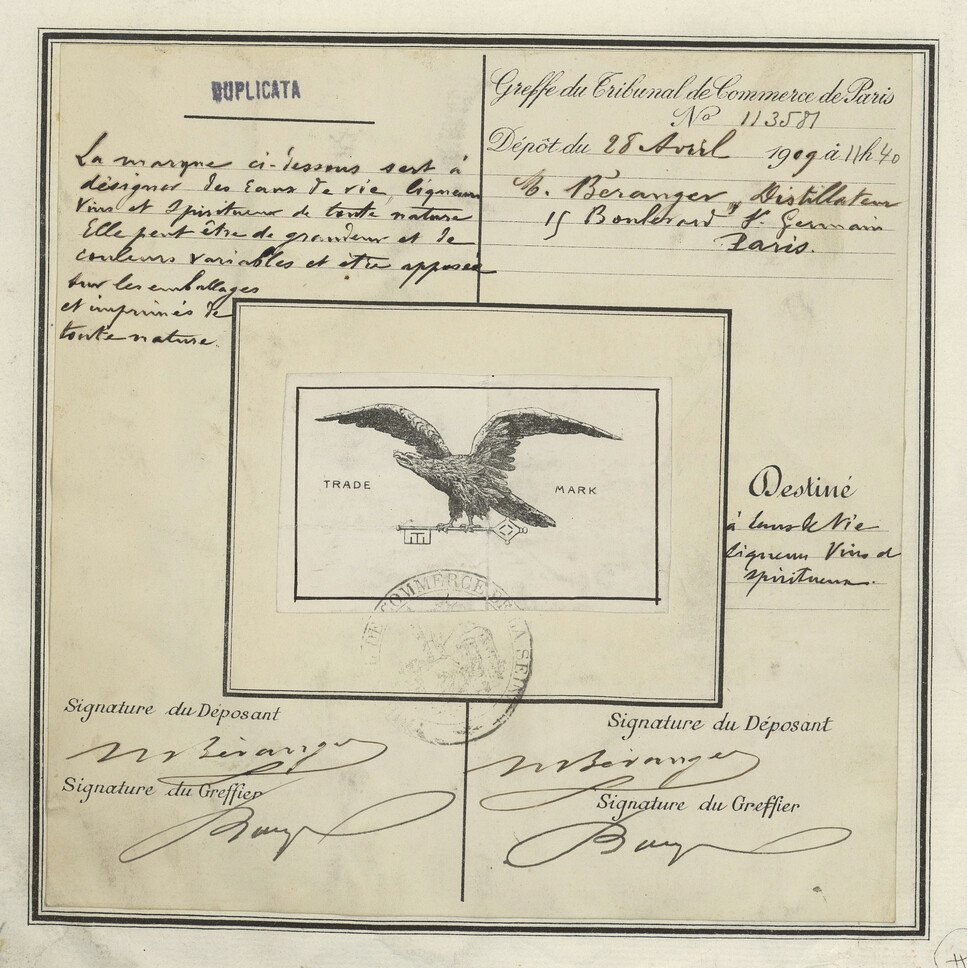 DUPLICATA
La marque ci-dessous sert à
désigner des Eaux de vie, liqueurs
Vins et Spiritueux de toute nature
Elle peut être de grandeur et de
couleurs variables et être apposée
sur les emballages
et imprimés de
toute nature.
Greffe du Tribunal de Commerce de Paris
No 113581
Dépôt du 28 Avril 1909 à 11h40
M. Béranger, Distillateur
15 Boulevard St Germain
Paris.
TRADE MARK
DE COMMERCE DE LA SEINE
Destiné
à Eaux de Vie
liqueurs Vins et
spiritueux.
Signature du Déposant
Béranger
Signature du Greffier
Signature du Déposant
Béranger
Signature du Greffier